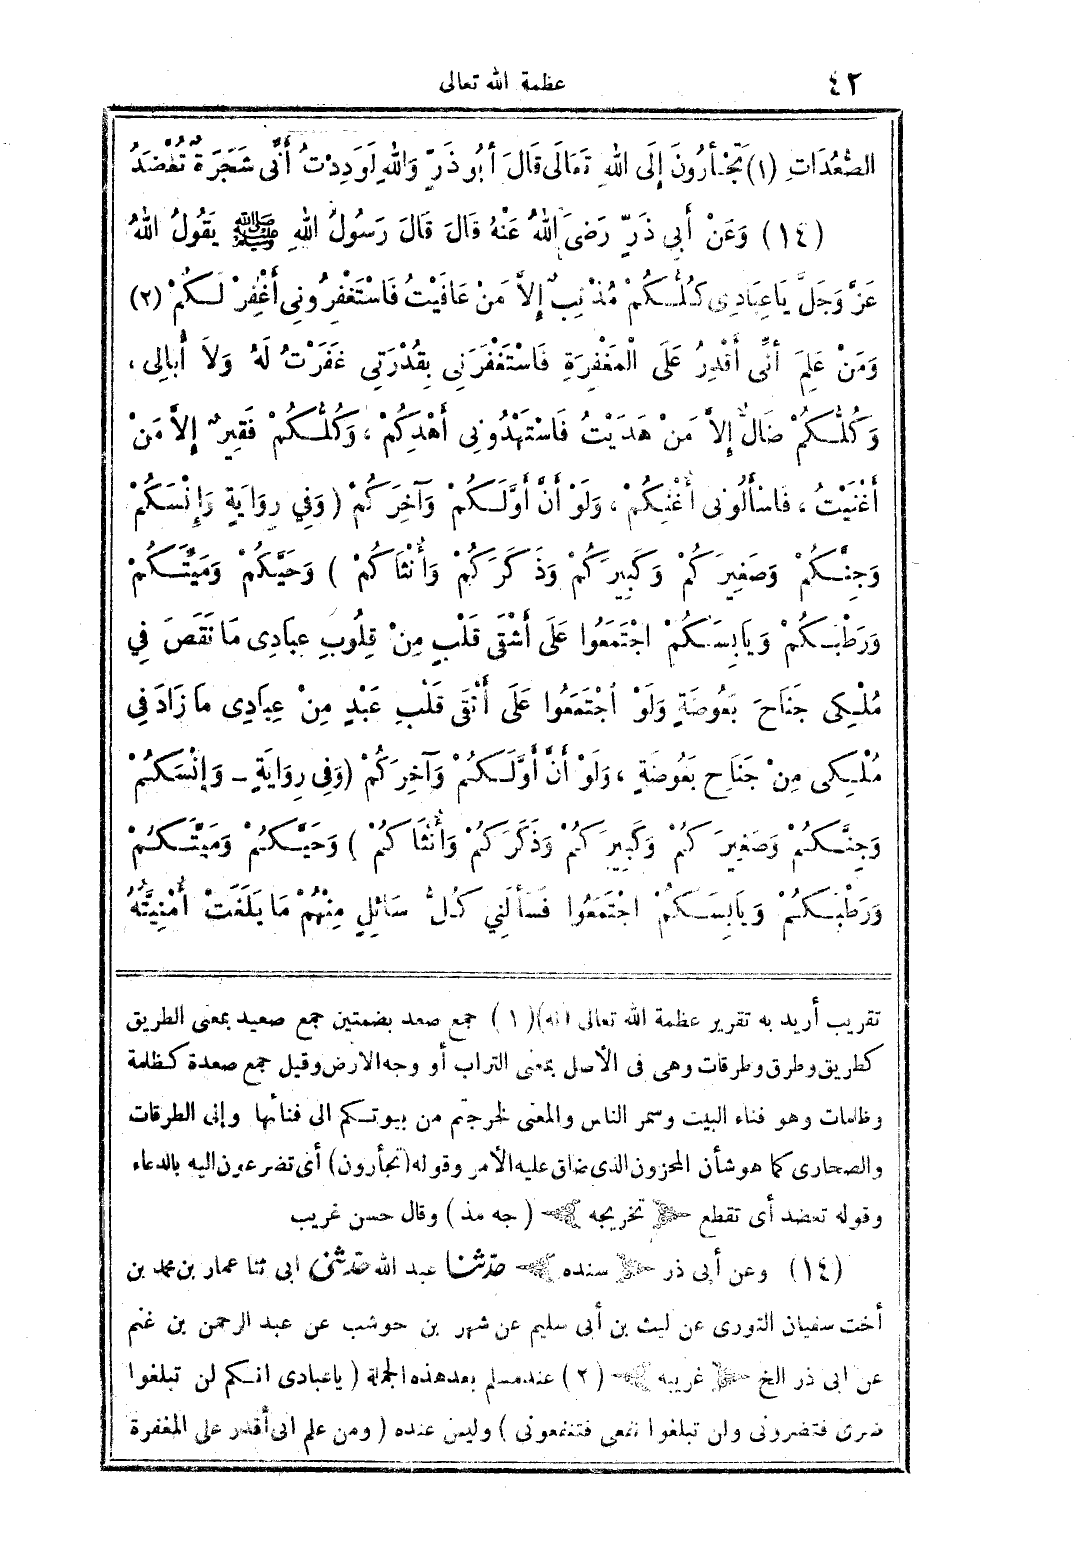 ٤٢
عظمة الله تعالى
الصُّعُدَاتِ (١) تَجْأَرُونَ إِلَى اللهِ تَعَالَى قَالَ أَبُو ذَرٍّ وَاللهِ لَوَدِدْتُ أَنِّى شَجَرَةٌ تُعْضَدُ
(١٤) وَعَنْ أَبِي ذَرٍّ رَضِىَ اللهُ عَنْهُ قَالَ قَالَ رَسُولُ اللهِ ﷺ يَقُولُ اللهُ
عَزَّ وَجَلَّ يَاعِبَادِى كُلُّكُمْ مُذْنِبٌ إِلاَّ مَنْ عَافَيْتُ فَاسْتَغْفِرُونِى أَغْفِرْ لَكُمْ (٢)
وَمَنْ عَلِمَ أَنِّى أَقْدِرُ عَلَى الْمَغْفِرَةِ فَاسْتَغْفَرَنِى بِقُدْرَتِى غَفَرْتُ لَهُ وَلاَ أُبَالِى ،
وَكُلُّكُمْ ضَالٌّ إِلاَّ مَنْ هَدَيْتُ فَاسْتَهْدُونِى أَهْدِكُمْ ، وَكُلُّكُمْ فَقِيرٌ إِلاَّ مَنْ
أَغْنَيْتُ ، فَاسْأَلُونِى أُغْنِكُمْ ، وَلَوْ أَنَّ أَوَّلَكُمْ وَآخِرَكُمْ ( وَفِي رِوَايَةٍ وَإِنْسَكُمْ
وَجِنَّكُمْ وَصَغِيرَكُمْ وَكَبِيرَكُمْ وَذَكَرَكُمْ وَأُنْثَاكُمْ ) وَحَيَّكُمْ وَمَيِّتَكُمْ
وَرَطْبَكُمْ وَيَابِسَكُمْ اجْتَمَعُوا عَلَى أَشْقَى قَلْبٍ مِنْ قُلُوبِ عِبَادِى مَا نَقَصَ فِي
مُلْكِى جَنَاحَ بَعُوضَةٍ وَلَوْ اجْتَمَعُوا عَلَى أَتْقَى قَلْبِ عَبْدٍ مِنْ عِبَادِى مَا زَادَ فِى
مُلْكِى مِنْ جَنَاحِ بَعُوضَةٍ ، وَلَوْ أَنَّ أَوَّلَكُمْ وَآخِرَكُمْ (وَفِى رِوَايَةٍ - وَإِنْسَكُمْ
وَجِنَّكُمْ وَصَغِيرَكُمْ وَكَبِيرَكُمْ وَذَكَرَكُمْ وَأُنْثَاكُمْ ) وَحَيَّكُمْ وَمَيِّتَكُمْ
وَرَطْبَكُمْ وَيَابِسَكُمْ اجْتَمَعُوا فَسَأَلَنِي كُلُّ سَائِلٍ مِنْهُمْ مَا بَلَغَتْ أُمْنِيَّتُهُ
تقريب أريد به تقرير عظمة الله تعالى اه)(١) جمع صعد بضمتين جمع صعيد بمعنى الطريق
كطريق وطرق وطرقات وهى فى الأصل بمعنى التراب أو وجه الارض وقيل جمع صعدة كظلمة
وظلمات وهو فناء البيت وممر الناس والمعنى لخرجتم من بيوتكم الى فنائها وإلى الطرقات
والصحارى كما هو شأن المحزون الذى ضاق عليه الأمر وقوله (تجأرون) أى تضرعون اليه بالدعاء
وقوله تعضد أى تقطع تخريجه ( جه مذ ) وقال حسن غريب
(١٤) وعن أبى ذر سنده حدثنا عبد الله حدثنى ابى ثنا عمار بن محمد بن
أخت سفيان الثورى عن ليث بن أبى سليم عن شهر بن حوشب عن عبد الرحمن بن غنم
عن ابى ذر الخ غريبه (٢) عند مسلم بعد هذه الجملة ( ياعبادى انكم لن تبلغوا
ضرى فتضرونى ولن تبلغوا نفعى فتنفعونى ) وليس عنده ( ومن علم انى أقدر على المغفرة